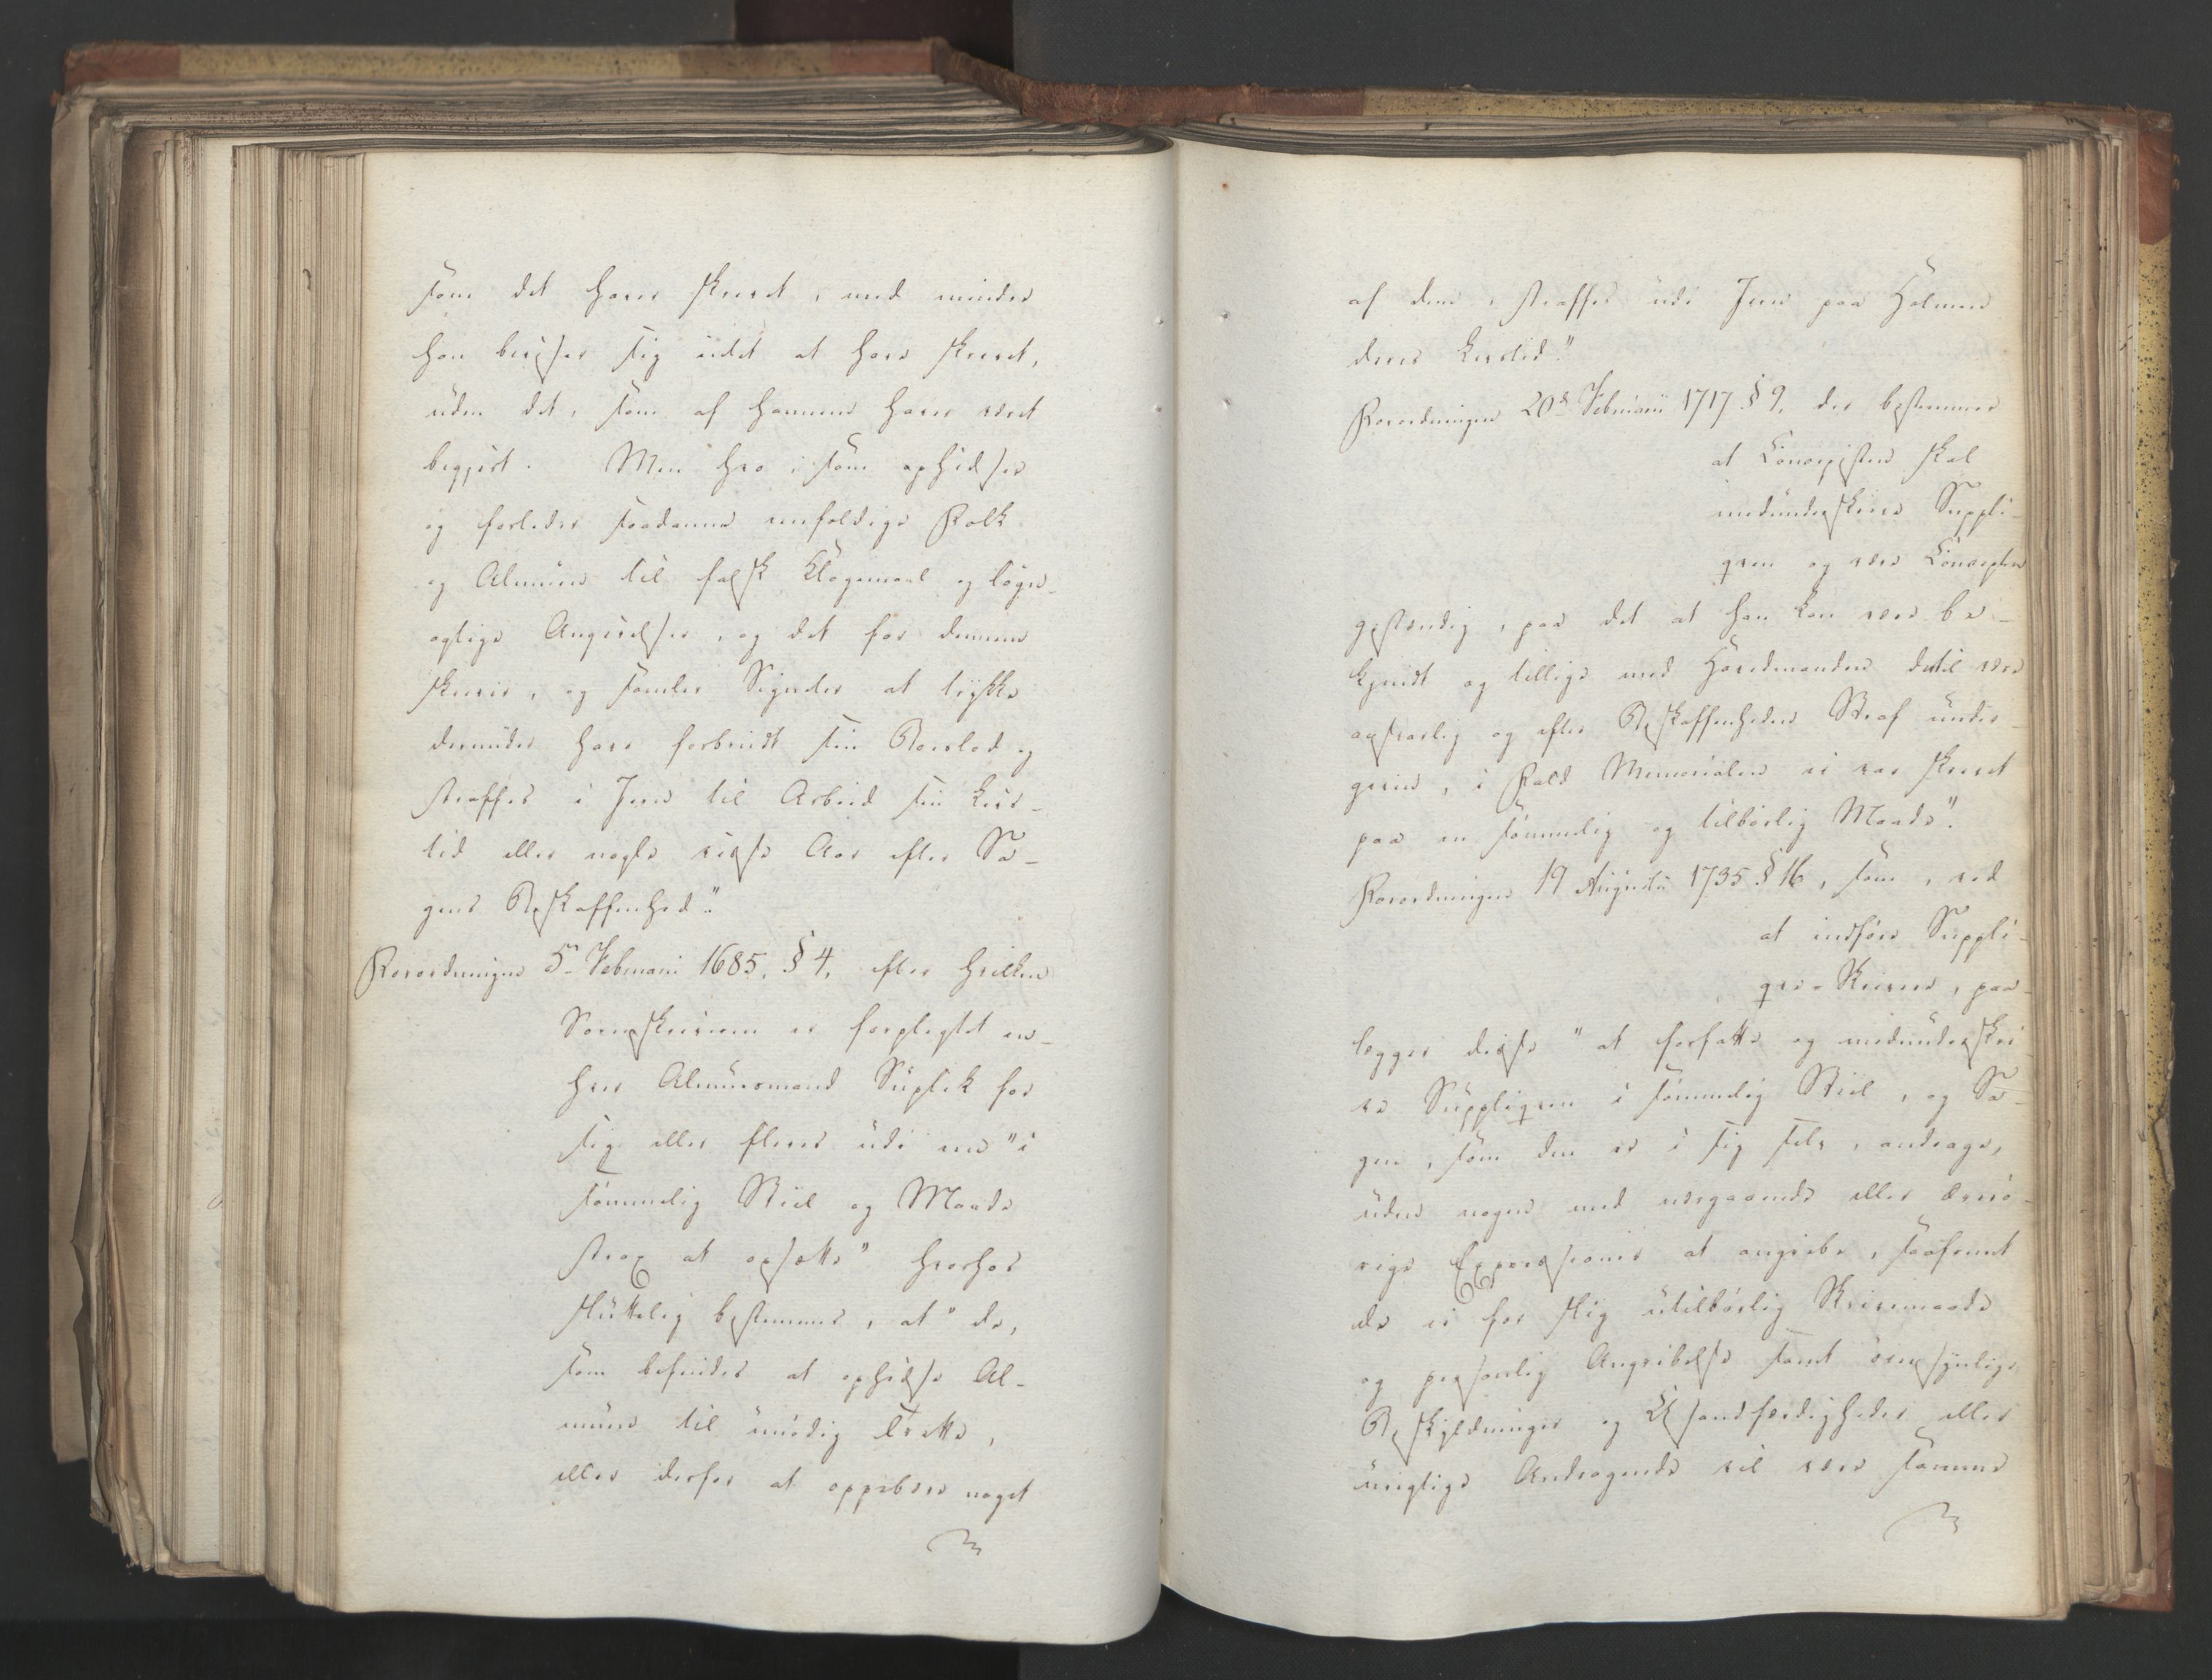 som det haver skrevet, med mindre
han beviser sig idet at have skrevet,
uden det, som af hannem haver været
begjert. Men hvo, som ophidser
og forleder saadanne eenfoldige Folk
og Almue til falsk Klagemaal og løgn-
agtige Angivelser, og det for dennem
skriver, og samler Signeter at trykke
derunder have forbrudt sin Boeslod og
straffes i Jern til Arbeid sin Livs-
tid eller nogle visse Aar efter Sa-
gens Beskaffenhed."
Forordningen 5te Februari 1685. § 4, efter hvilken
Sorenskriveren er forpligtet en-
hver Almuesmand Suplik for
sig eller flere udi een "i
sømmelig Stiil og Maade
strax at opsætte" hvorhos
sluttelig bestemmes, at "de,
som befindes at ophidse Al-
muen til unødig Trætte,
eller derfor at oppebære noget
af dem, straffes udi Jern paa Holmen
deres Livstid."
Forordningen 20de Februarii 1717 § 9, der bestemmer
at Concipisten skal
medunderskrive Suppli-
qven og være Concepten
gestændig, paa det at han kan være be-
kjendt og tillige med Hovedmanden dertil være
ansvarlig og efter Beskaffenheden Straf under-
given, i Fald Memorialen ei var skrevet
paa en sømmelig og tilbørlig Maade."
Forordningen 19 Augusti 1735 § 16, som, ved
at indføre Suppli-
qve-Skrivere, paa-
lægger disse "at forfatte og medunderskri-
ve Suppliqven i sømmelig Stiil, og Sa-
gen, som den er i sig selv, andrage,
uden nogen med nærgaaende eller ærrø-
rige Expressioner at angribe, saafremt
de ei for slig utilbørlig Skrivemaade
og personlig Angribelse samt øiensynlige
Beskyldninger og Usandfærdigheder eller
urigtige Andragende vil være samme